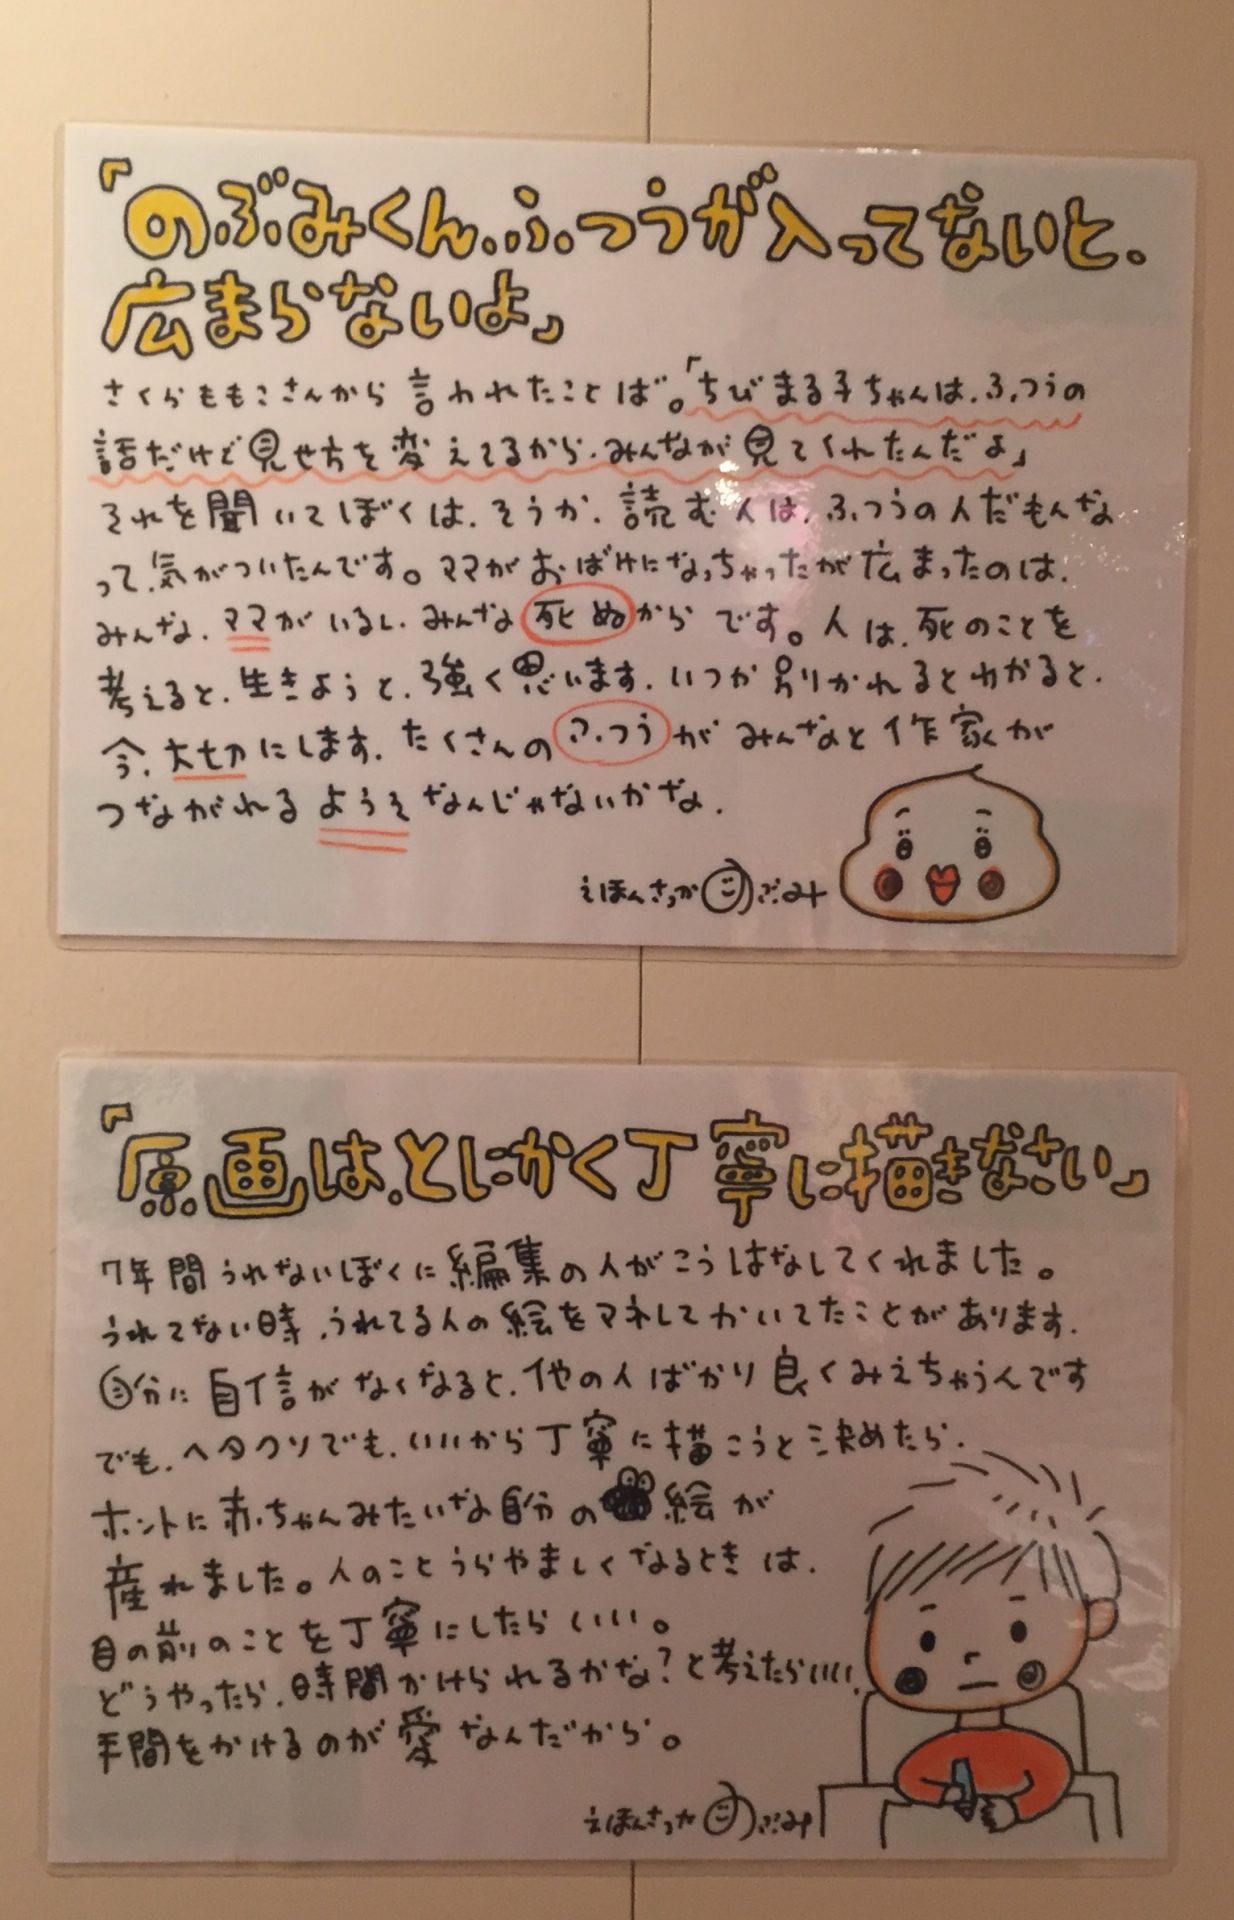 「のぶみくん、ふつうが入ってないと、
広まらないよ」
さくらももこさんから言われたことば。「ちびまる子ちゃんは、ふつうの
話だけど見せ方を変えてるから、みんなが見てくれたんだよ」
それを聞いてぼくは、そうか、読む人は、ふつうの人だもんな
って、気がついたんです。ママがおばけになっちゃったが広まったのは、
みんな、ママがいるし、みんな死ぬからです。人は、死のことを
考えると、生きようと、強く思います。いつか別かれるとわかると、
今、大切にします。たくさんのふつうがみんなと作家が
つながれるようそなんじゃないかな。
えほんさっかのぶみ
「原画は、とにかく丁寧に描きなさい」
7年間うれないぼくに編集の人がこうはなしてくれました。
うれてない時、うれてる人の絵をマネしてかいてたことがあります。
自分に自信がなくなると、他の人ばかり良くみえちゃうんです
でも、ヘタクソでも、いいから丁寧に描こうと決めたら、
ホントに赤ちゃんみたいな自分の絵が
産れました。人のことうらやましくなるときは、
目の前のことを丁寧にしたらいい。
どうやったら、時間かけられるかな?と考えたらいい、
手間をかけるのが愛なんだから。
えほんさっかのぶみ